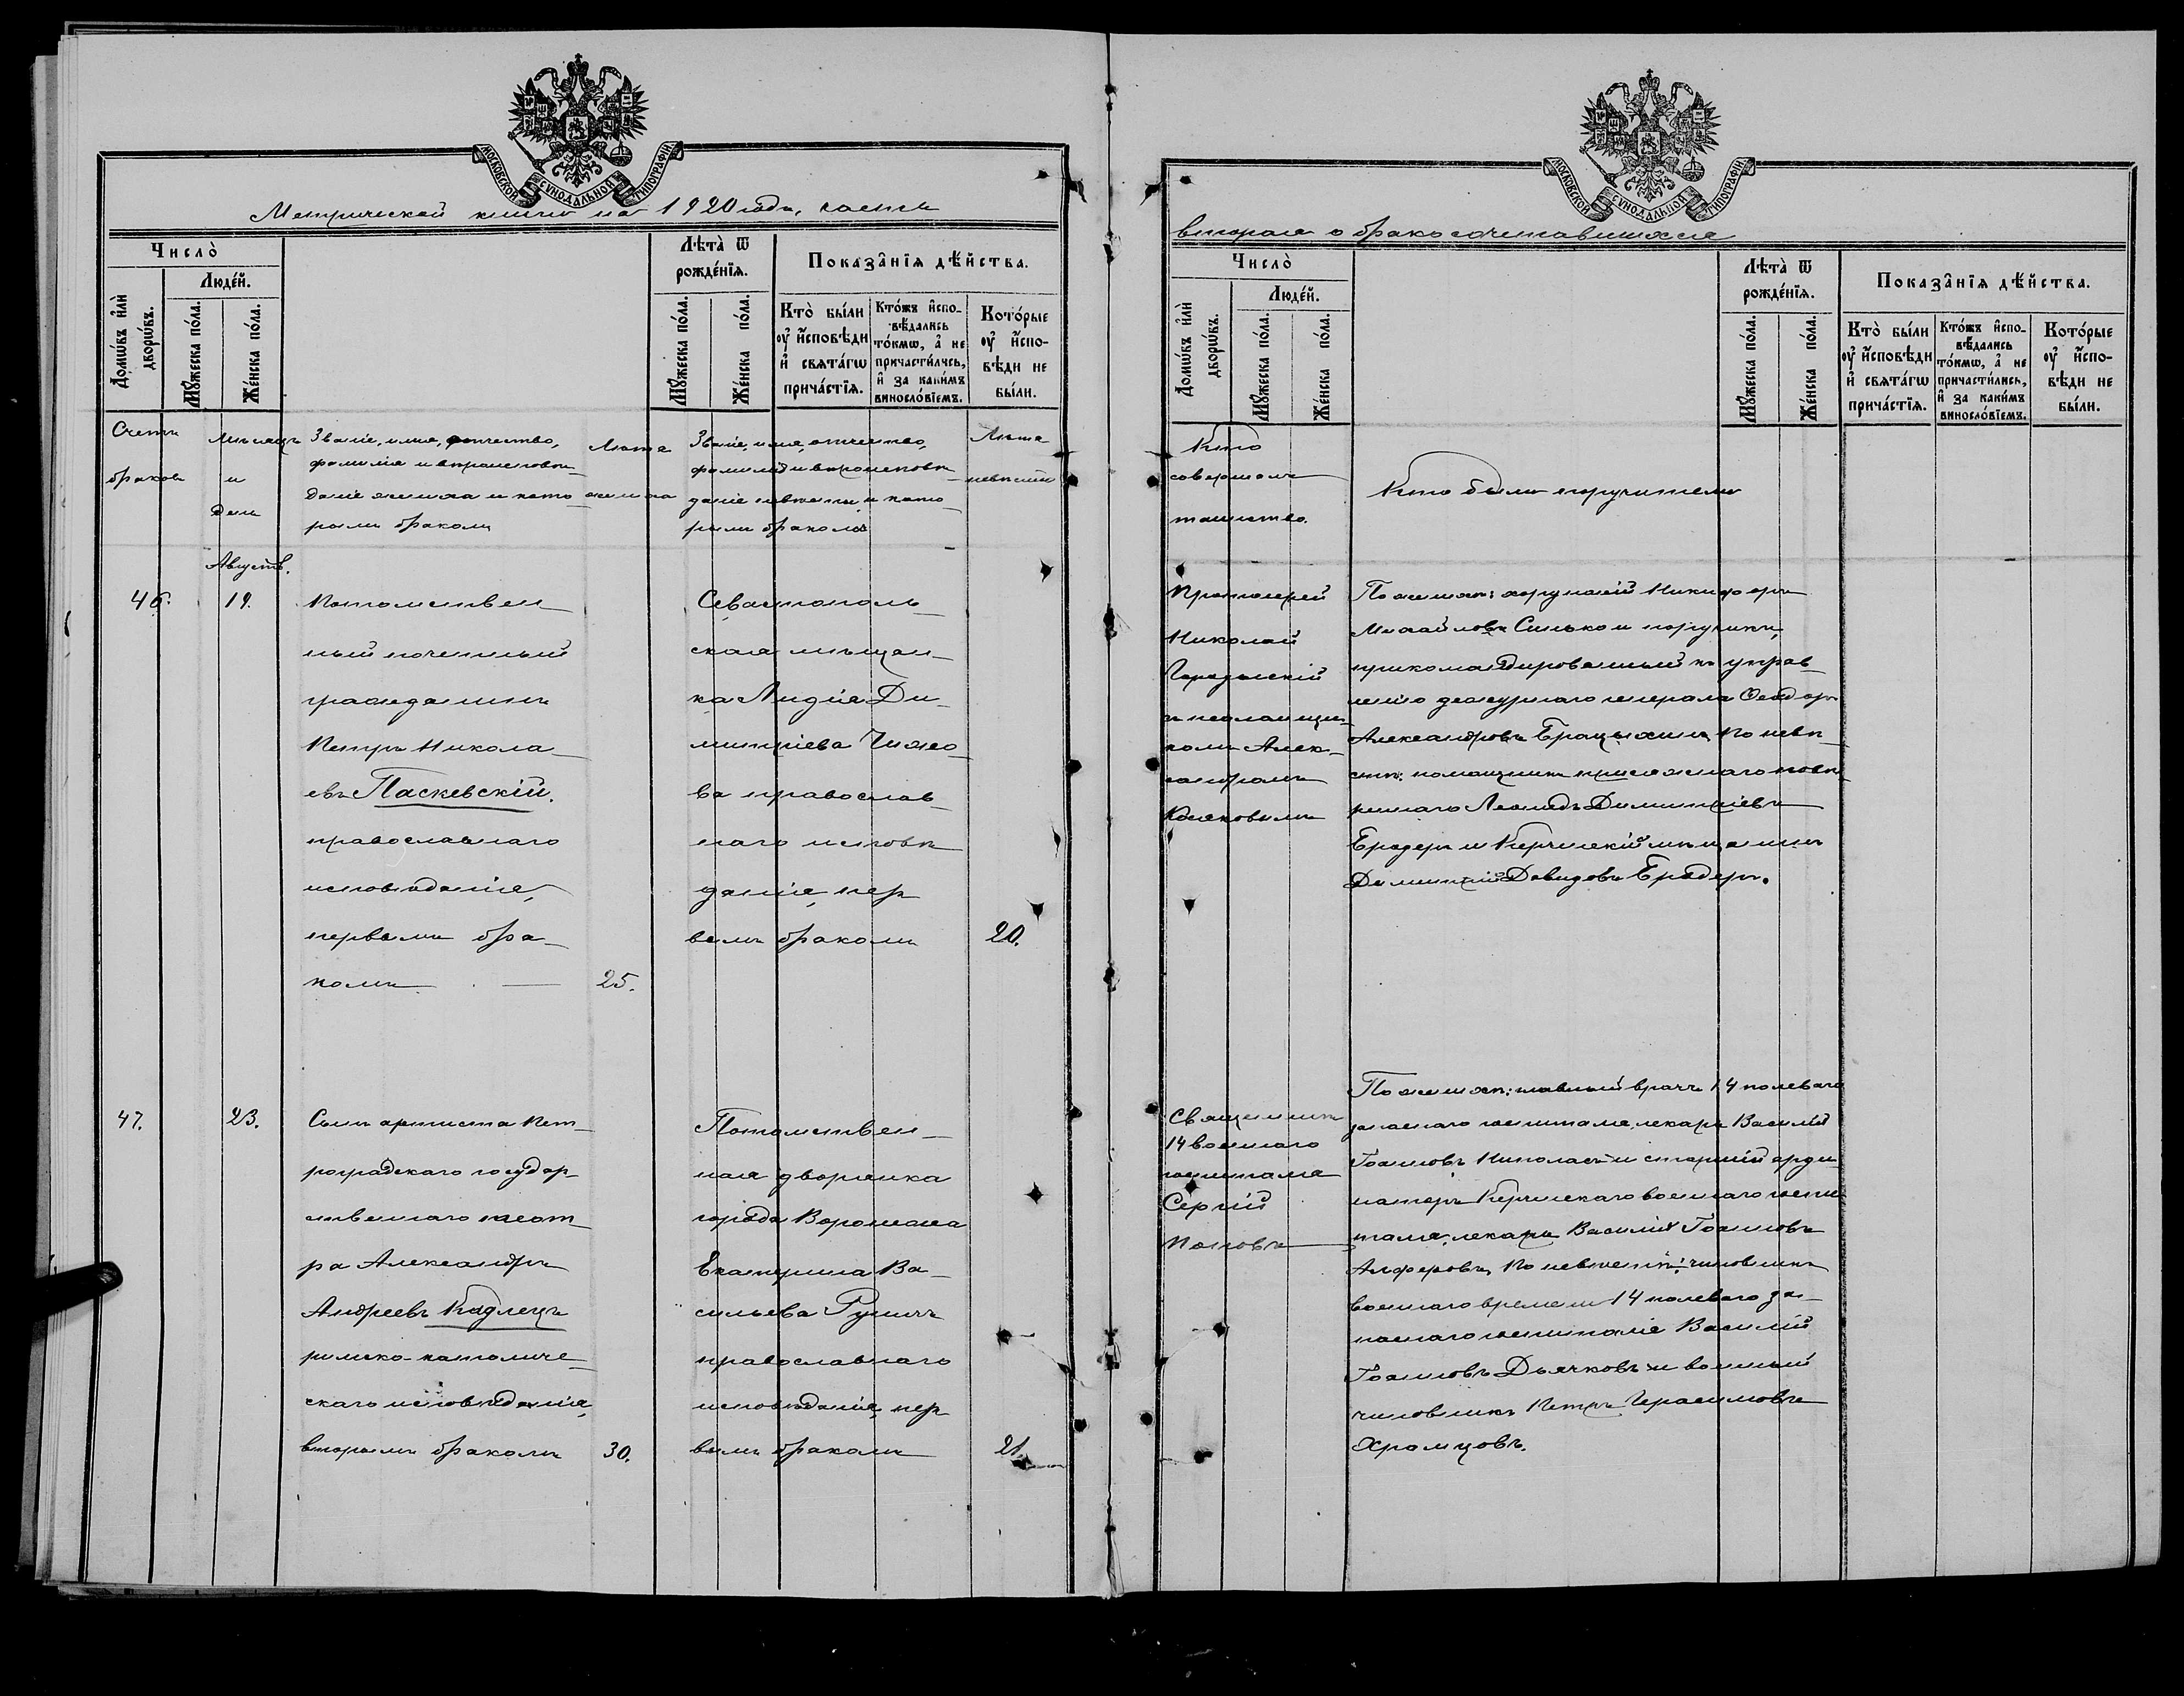 МОСКОВСКОЙ СѴНОДАЛЬНОЙ ТИПОГРАФІИ
Метрической книги на 1920 годъ, часть
Число̀
Людей.
Домѡ́въ и҆лѝ дворѡ́въ.
Мꙋ́жеска по́ла.
Же́нска по́ла.
Лѣ́та ѿ рожде́нїѧ.
Мꙋ́жеска по́ла.
Же́нска по́ла.
Показа̑нїѧ дѣ́йства.
Кто̀ бы́ли ᲂу҆ и҆сповѣди и҆ свѧта́гѡ прича́стїѧ.
Кто́жъ и҆сповѣдались то́кмѡ, а҆ не причасти́лись, и҆ за каки́мъ винословїемъ.
Кото́рые ᲂу҆ и҆сповѣди не бы́ли.
Счетъ
браковъ
Мѣсяцъ
и
день
Званіе, имя, отчество,
фамилія и вѣроисповѣ-
даніе жениха и кото-
рымъ бракомъ
Лѣта
жениха
Званіе, имя, отчество,
фамилія и вѣроисповѣ-
даніе невѣсты и кото-
рымъ бракомъ
Лѣта
невѣсты
Августъ.
46.
19.
Потомствен-
ный почетный
гражданинъ
Петръ Никола-
евъ Паскевскій.
православнаго
исповѣданія,
первымъ бра-
комъ —
25.
Севастополь-
ская мѣщан-
ка Лидія Ди-
митріева Чихо-
ва православ-
наго исповѣ-
данія, пер-
вымъ бракомъ
20.
47.
23.
Сынъ артиста Пет-
роградскаго государ-
ственнаго театра
ра Александръ
Андреевъ Кадлецъ
римско-католиче-
скаго исповѣданія,
вторымъ бракомъ
30.
Потомствен-
ная дворянка
города Воронежа
Екатерина Ва-
сильева Руничъ
православнаго
исповѣданія, пер-
вымъ бракомъ
21.
МОСКОВСКОЙ СѴНОДАЛЬНОЙ ТИПОГРАФІИ
вторая о бракосочетавшихся
Число̀
Людей.
Домѡ́въ и҆лѝ дворѡ́въ.
Мꙋ́жеска по́ла.
Же́нска по́ла.
Лѣ́та ѿ рожде́нїѧ.
Мꙋ́жеска по́ла.
Же́нска по́ла.
Показа̑нїѧ дѣ́йства.
Кто̀ бы́ли ᲂу҆ и҆сповѣди и҆ свѧта́гѡ прича́стїѧ.
Кто́жъ и҆сповѣдались то́кмѡ, а҆ не причасти́лись, и҆ за каки́мъ винословїемъ.
Кото́рые ᲂу҆ и҆сповѣди не бы́ли.
Кто
совершалъ
таинство.
Кто были поручители
Протоіерей
Николай
съ псаломщи-
комъ Алек-
сандромъ
По женихѣ: хорунжій Никифоръ
Михайловъ Силько и поручикъ,
прикомандированный къ управ-
ленію дежурнаго генерала Ѳеодоръ
Александровъ По невѣ-
стѣ: помощникъ присяжнаго повѣ-
реннаго Леонидъ Димитріевъ
Бродеръ и Керченскій мѣщанинъ
Димитрій Давидовъ Бродеръ.
Священникъ
14 военнаго
госпиталя
Сергій
Поповъ
По женихѣ: главный врачъ 14 полеваго
запаснаго госпиталя, лекарь Василій
Іоанновъ и старшій орди-
наторъ Керченскаго военнаго госпи-
таля, лекарь Василій Іоанновъ
Алферовъ, По невѣстѣ: чиновникъ
военнаго времени 14 полеваго за-
паснаго госпиталя Василій
Іоанновъ Дьячковъ и военный
чиновникъ Петръ Герасимовъ
Хромцовъ.